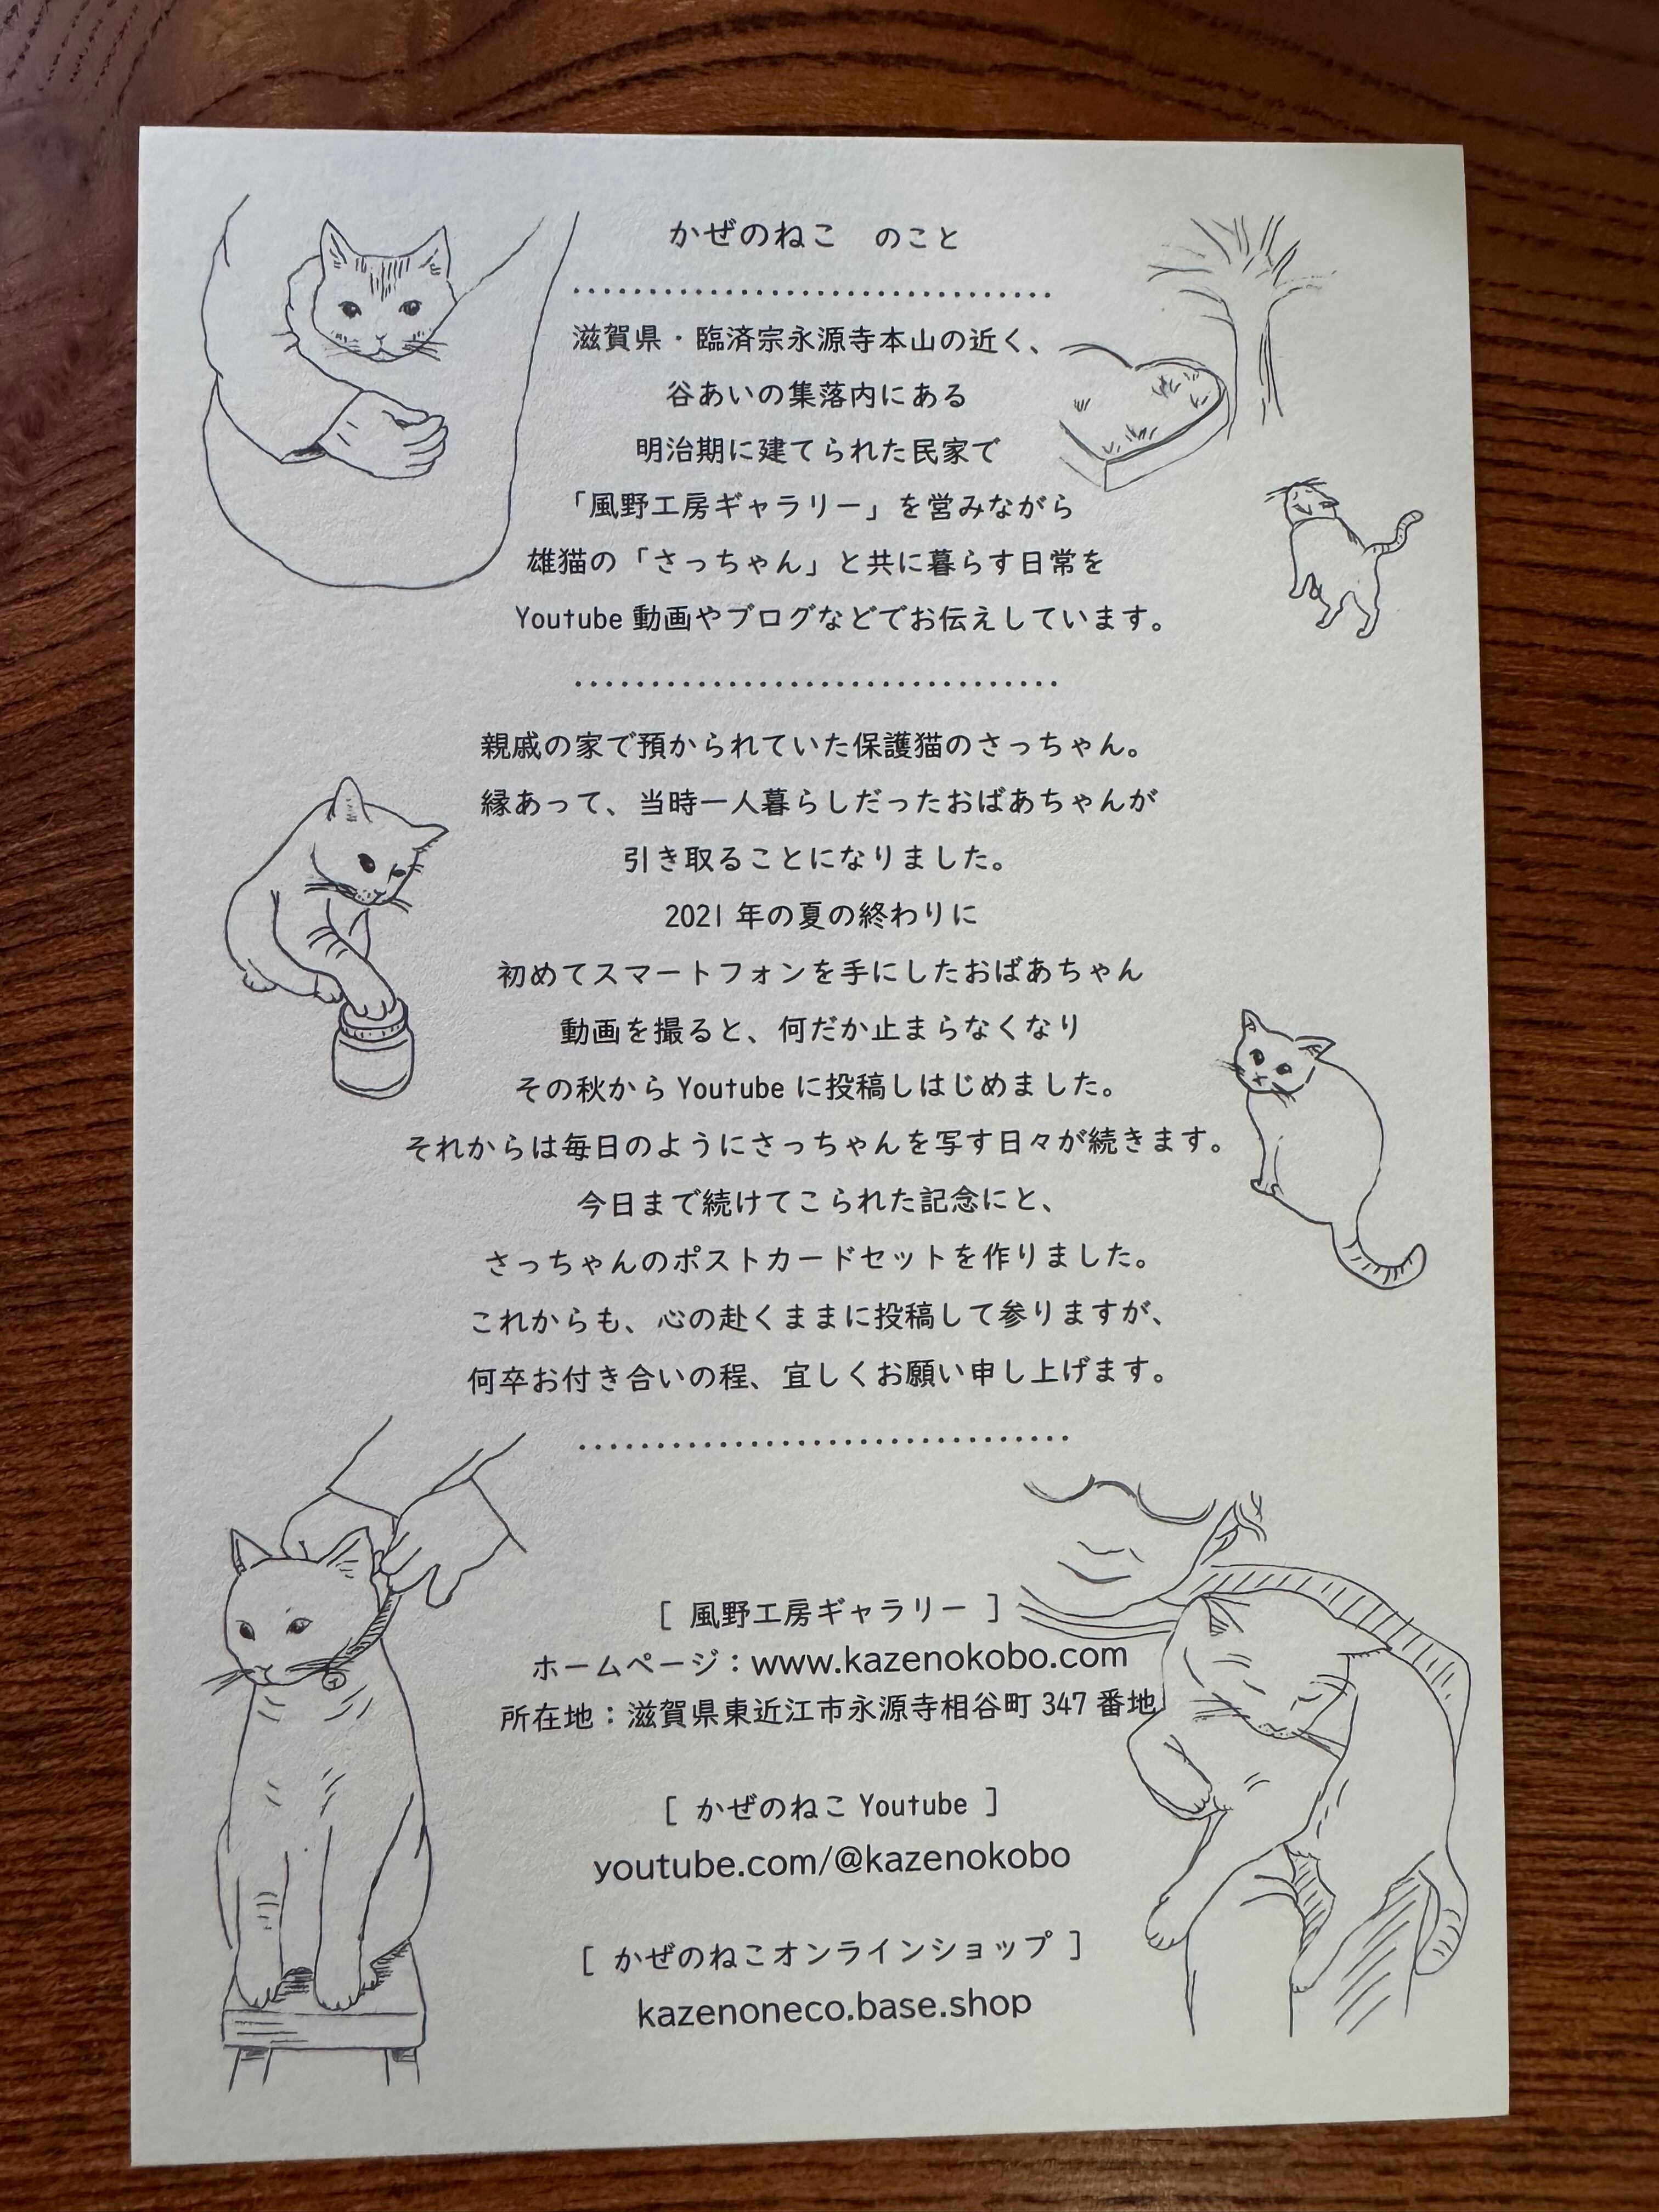 かぜのねこ　のこと
滋賀県・臨済宗永源寺本山の近く、
谷あいの集落内にある
明治期に建てられた民家で
「風野工房ギャラリー」を営みながら
雄猫の「さっちゃん」と共に暮らす日常を
Youtube 動画やブログなどでお伝えしています。
親戚の家で預かられていた保護猫のさっちゃん。
縁あって、当時一人暮らしだったおばあちゃんが
引き取ることになりました。
2021 年の夏の終わりに
初めてスマートフォンを手にしたおばあちゃん
動画を撮ると、何だか止まらなくなり
その秋から Youtube に投稿しはじめました。
それからは毎日のようにさっちゃんを写す日々が続きます。
今日まで続けてこられた記念にと、
さっちゃんのポストカードセットを作りました。
これからも、心の赴くままに投稿して参りますが、
何卒お付き合いの程、宜しくお願い申し上げます。
[ 風野工房ギャラリー ]
ホームページ：www.kazenokobo.com
所在地：滋賀県東近江市永源寺相谷町 347 番地
[ かぜのねこ Youtube ]
youtube.com/@kazenokobo
[ かぜのねこオンラインショップ ]
kazenoneco.base.shop